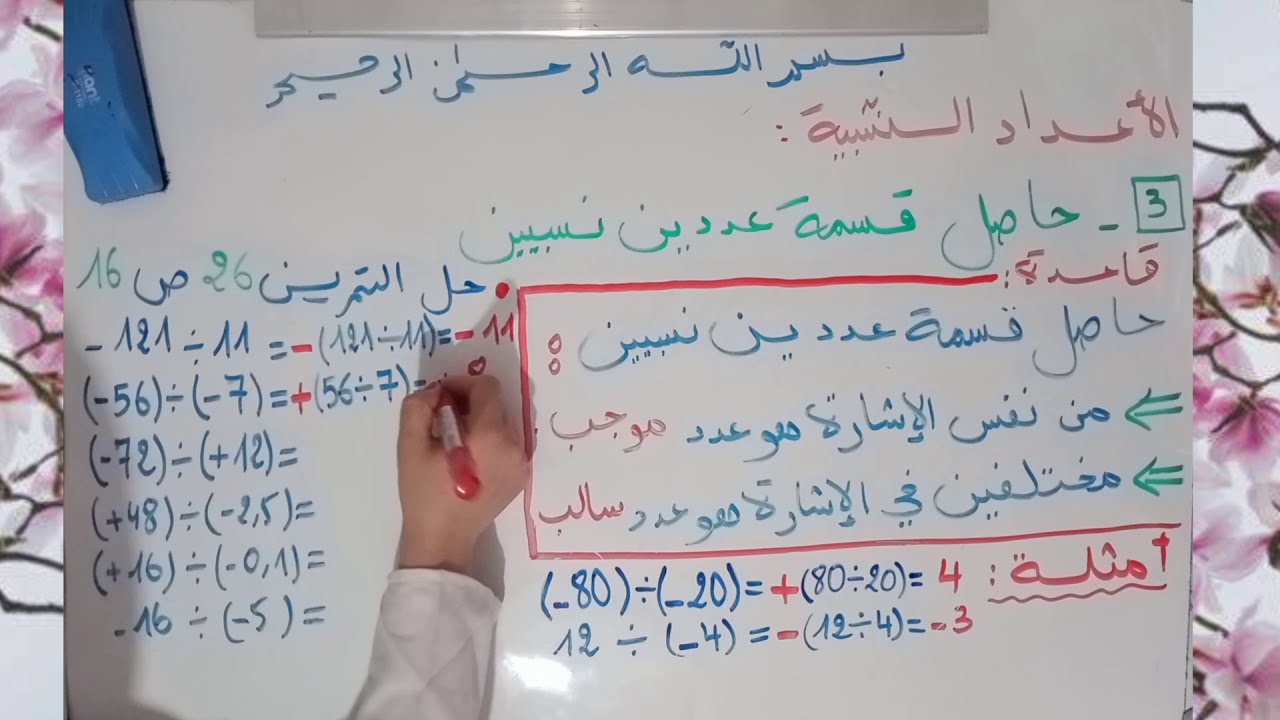 بسم الله الرحمان الرحيم
الأعداد النسبية :
3 - حاصل قسمة عددين نسبيين
قاعدة :
حاصل قسمة عددين نسبيين :
⇐ من نفس الإشارة هو عدد موجب .
⇐ مختلفين في الإشارة هو عدد سالب
أمثلة :
(-80) ÷ (-20) = + (80÷20) = 4
12 ÷ (-4) = - (12÷4) = -3
• حل التمرين 26 ص 16
-121 ÷ 11 = - (121÷11) = -11
(-56) ÷ (-7) = + (56÷7) =
(-72) ÷ (+12) =
(+48) ÷ (-2,5) =
(+16) ÷ (-0,1) =
-16 ÷ (-5) =